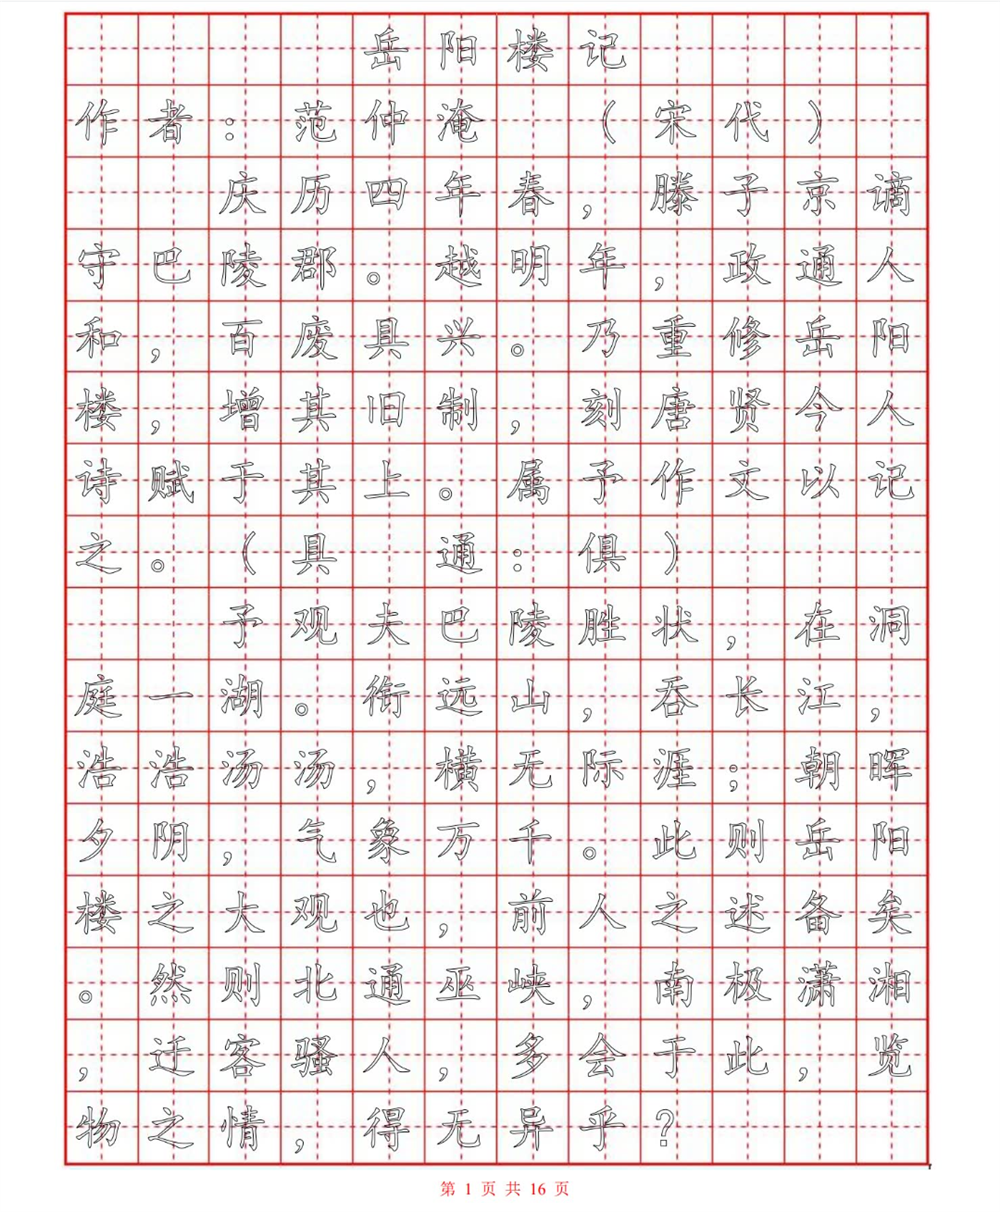 岳阳楼记
作者：范仲淹 （宋代）
庆历四年春，滕子京谪
守巴陵郡。越明年，政通人
和，百废具兴。乃重修岳阳
楼，增其旧制，刻唐贤今人
诗赋于其上。属予作文以记
之。（具 通：俱）
予观夫巴陵胜状，在洞
庭一湖。衔远山，吞长江，
浩浩汤汤，横无际涯；朝晖
夕阴，气象万千。此则岳阳
楼之大观也，前人之述备矣
。然则北通巫峡，南极潇湘
，迁客骚人，多会于此，览
物之情，得无异乎？
第 1 页 共 16 页